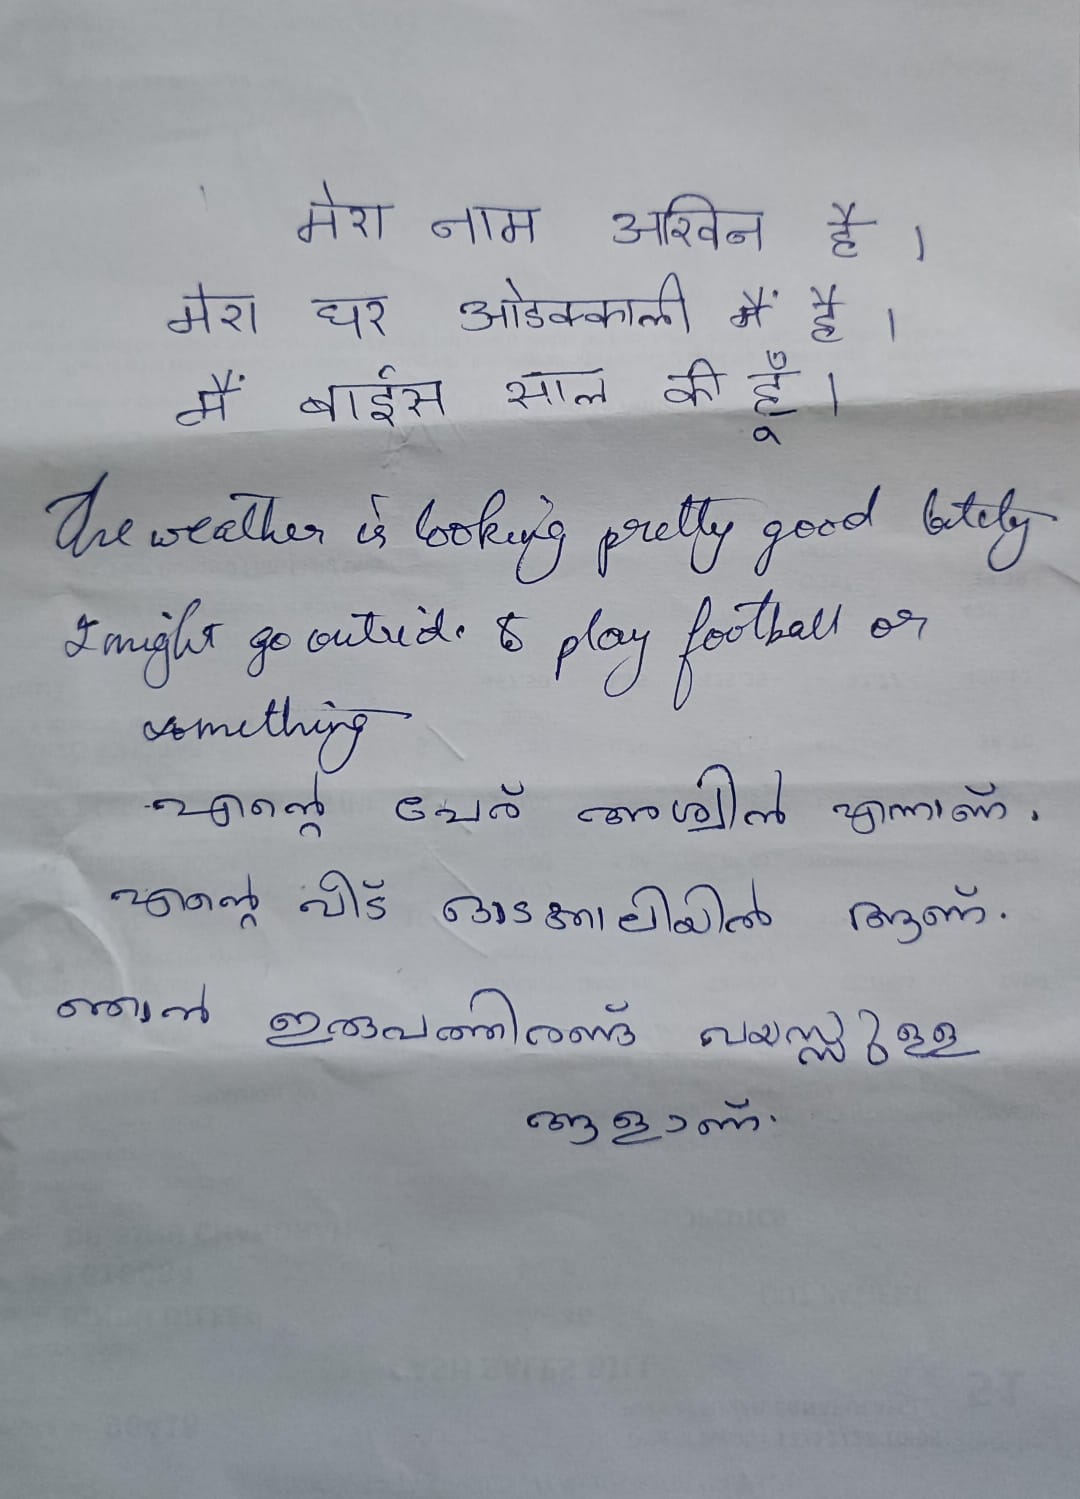 मेरा नाम अश्विन है ।
मेरा घर ओडक्काली में है ।
मैं बाईस साल की हूँ ।
The weather is looking pretty good lately
I might go outside to play football or
something
എന്റെ പേര് അശ്വിൻ എന്നാണ്.
എന്റെ വീട് ഓടക്കാലിയിൽ ആണ്.
ഞാൻ ഇരുപത്തിരണ്ട് വയസ്സുള്ള
ആളാണ്.